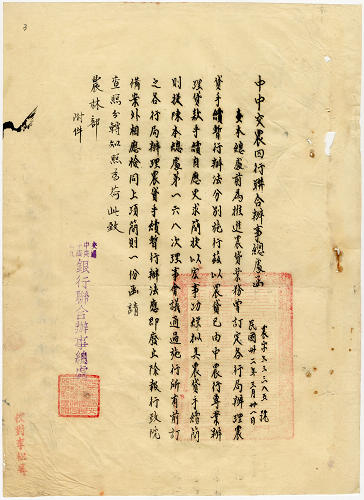 中中交農四行聯合辦事總處函
農字二二三八五號
民國卅二年三月廿八日
查本總處前為推進農貸業務曾訂定各行局辦理農
貸手續暫行辦法分別施行茲以農貸已由中農行專業辦
理貸款手續自應更求簡捷以宏事功經擬具農貸手續簡
則提陳本總處第一六八次理事會議通過施行所有前訂
之各行局辦理農貸手續暫行辦法應即廢止除報行政院
備案外相應檢同上項簡則一份函請
查照分轉知照為荷此致
農林部
附件
銀行聯合辦事總處
3